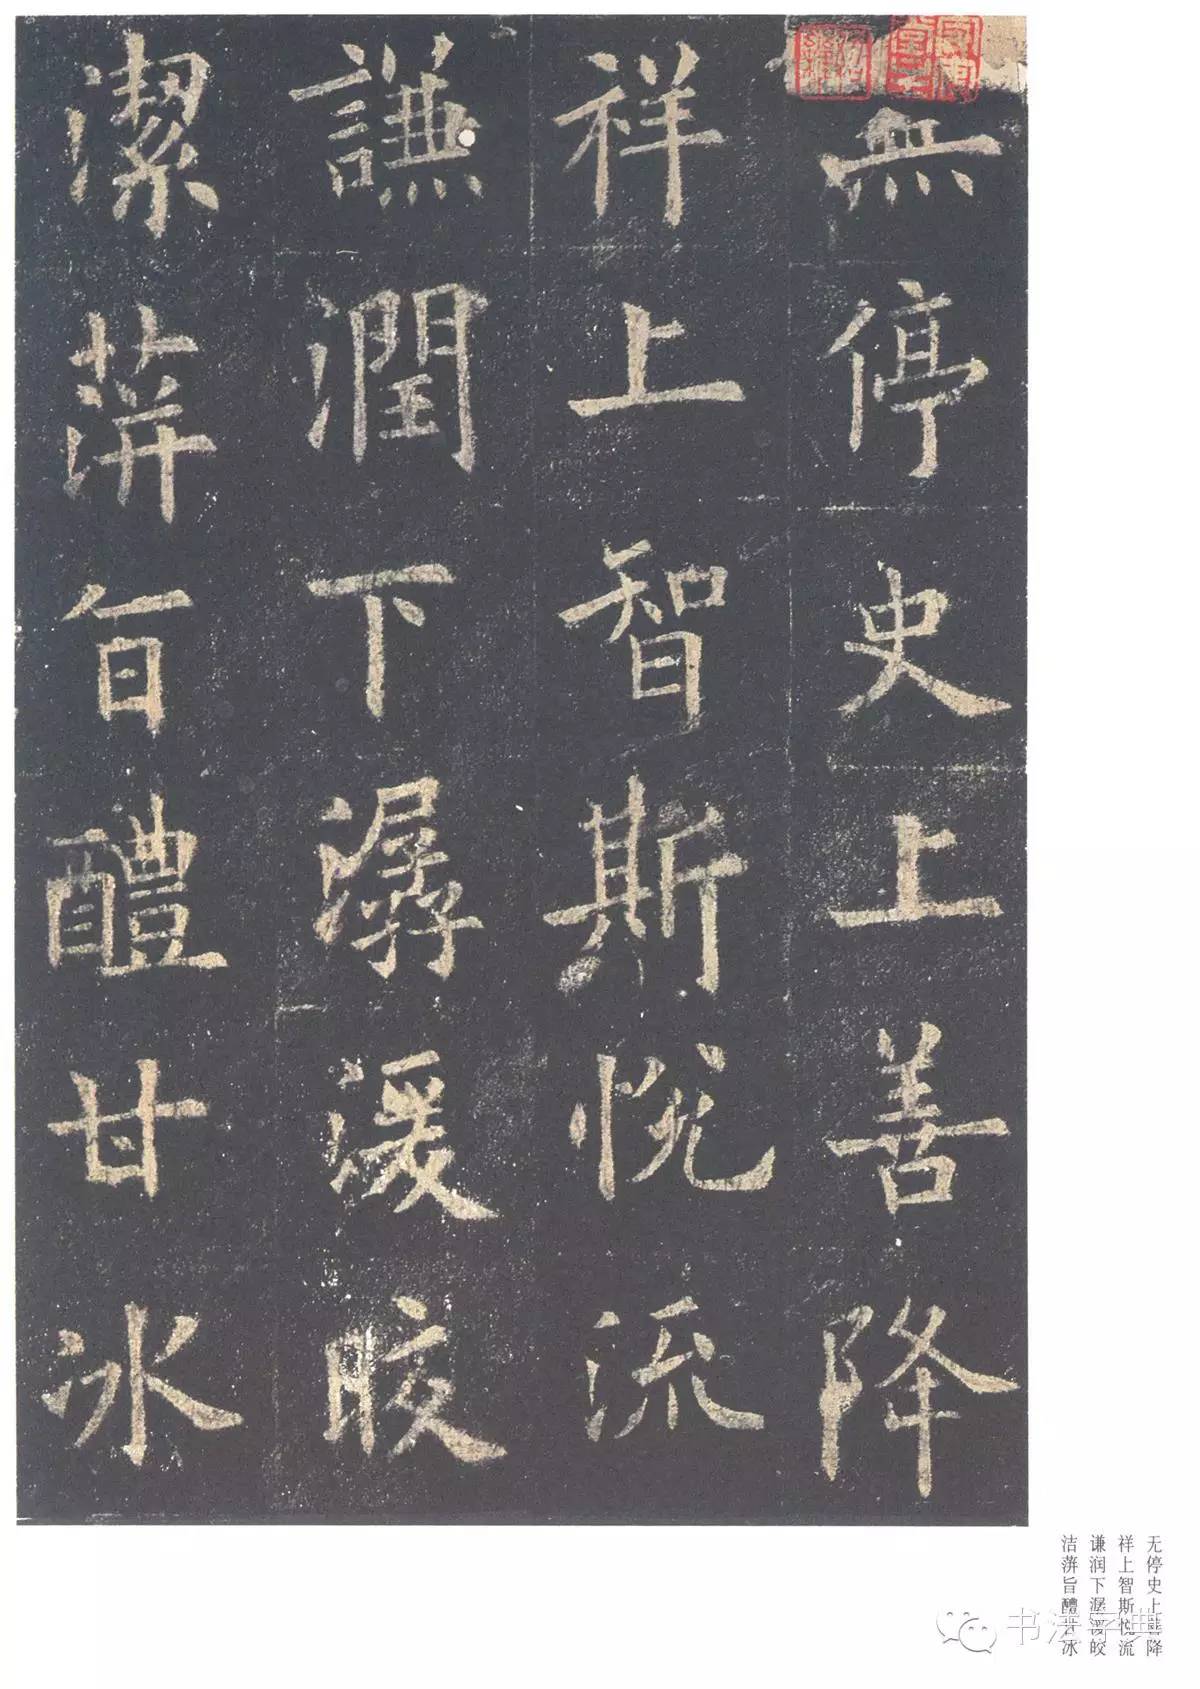 無停史上善降
祥上智斯悦流
謙潤下潺湲皎
潔蓱旨醴甘冰
无停史上善降
祥上智斯悦流
谦润下潺湲皎
洁蓱旨醴甘冰
书法字典